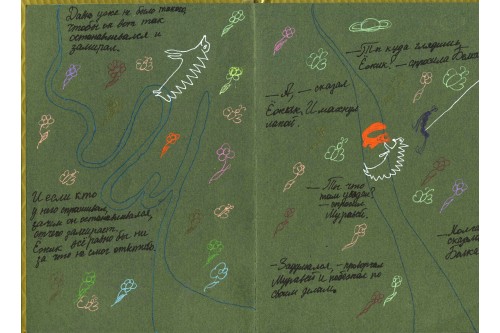 Давно уже не было такого,
чтобы он вот так
останавливался и
замирал.
И если кто
у него спрашивал,
зачем он останавливался,
отчего замирает.
Ёжик всё равно бы ни
за что не смог ответить.
— Ты куда глядишь,
Ёжик? — спросила Белка
— А, — сказал
Ёжик. И махнул
лапой.
— Ты что
там увидел?
— спросил
Муравей.
— Задумался, — проворчал
Муравей и побежал по
своим делам.
сказала
Белка